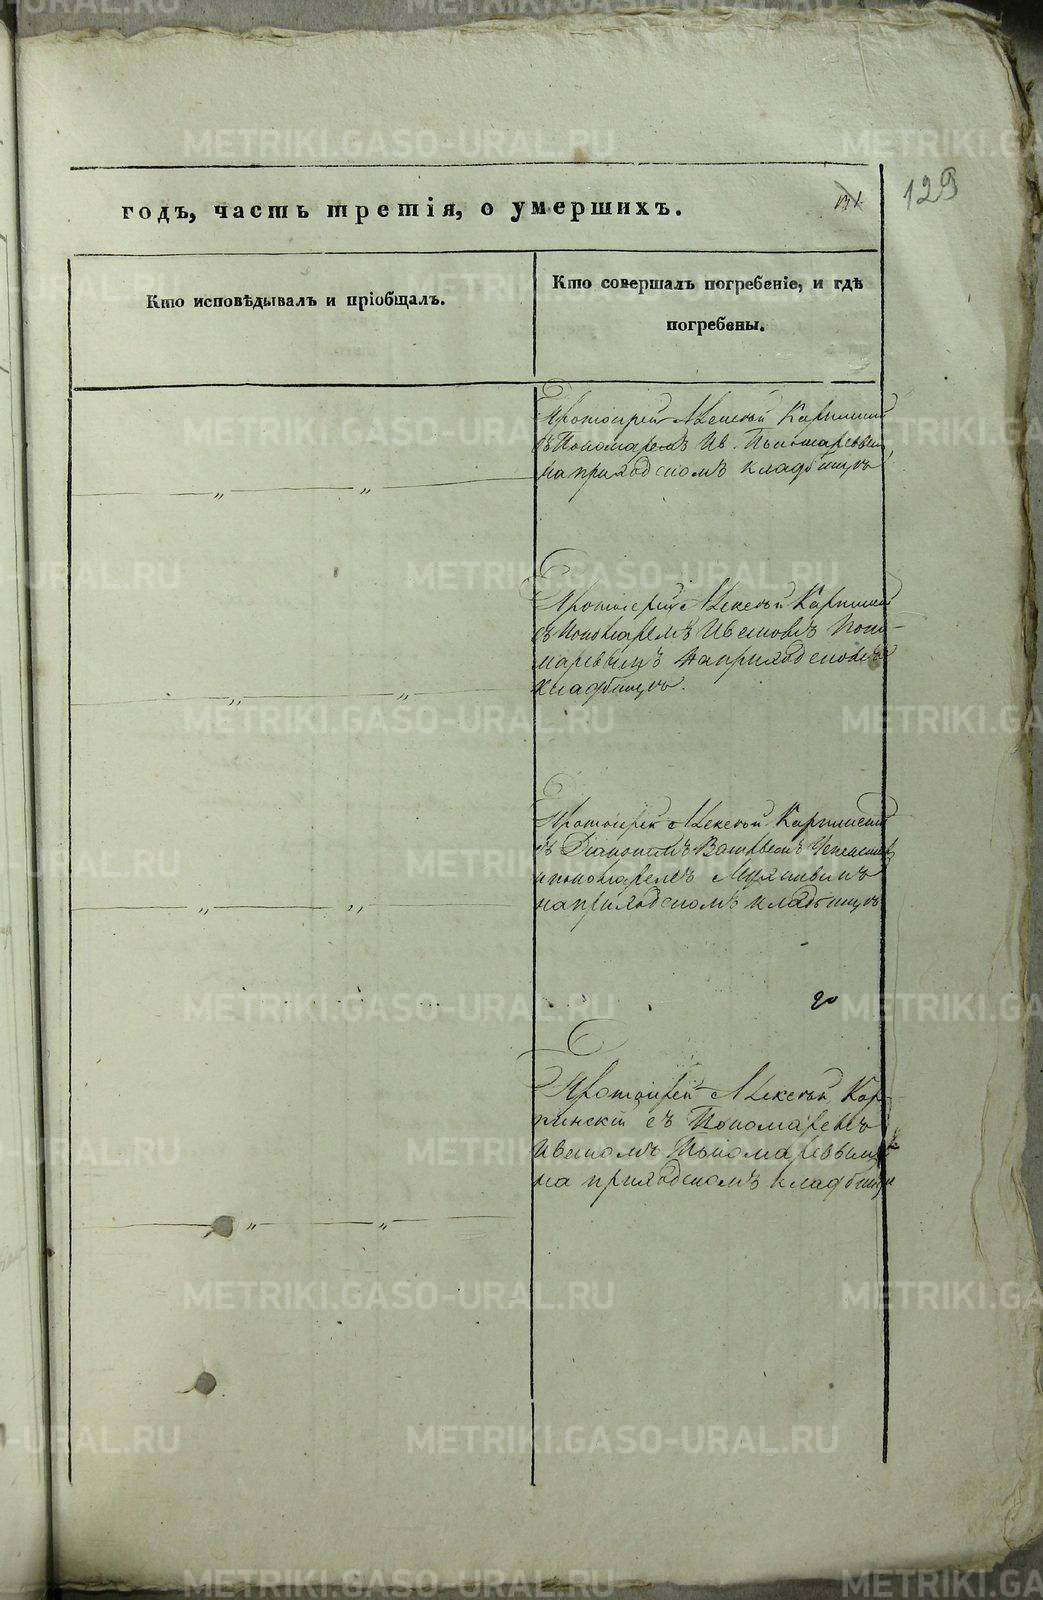 129
годъ, часть третія, о умершихъ.
Кто исповѣдывалъ и пріобщалъ.
Кто совершалъ погребеніе, и гдѣ
погребены.
Протоіерей Алексѣй Карпинскій
съ Пономаремъ Ив. Пономаревымъ
на приходскомъ кладбищѣ
Протоіерей Алексѣй Карпинскій
съ Пономаремъ Иваномъ Поно-
маревымъ на приходскомъ
кладбищѣ.
Протоіерей Алексѣй Карпинскій
съ Діакономъ
и пономаремъ
на приходскомъ кладбищѣ
Протоіерей Алексѣй Кар-
пинскій съ Пономаремъ
Иваномъ Пономаревымъ
на приходскомъ кладбищѣ
METRIKI.GASO-URAL.RU